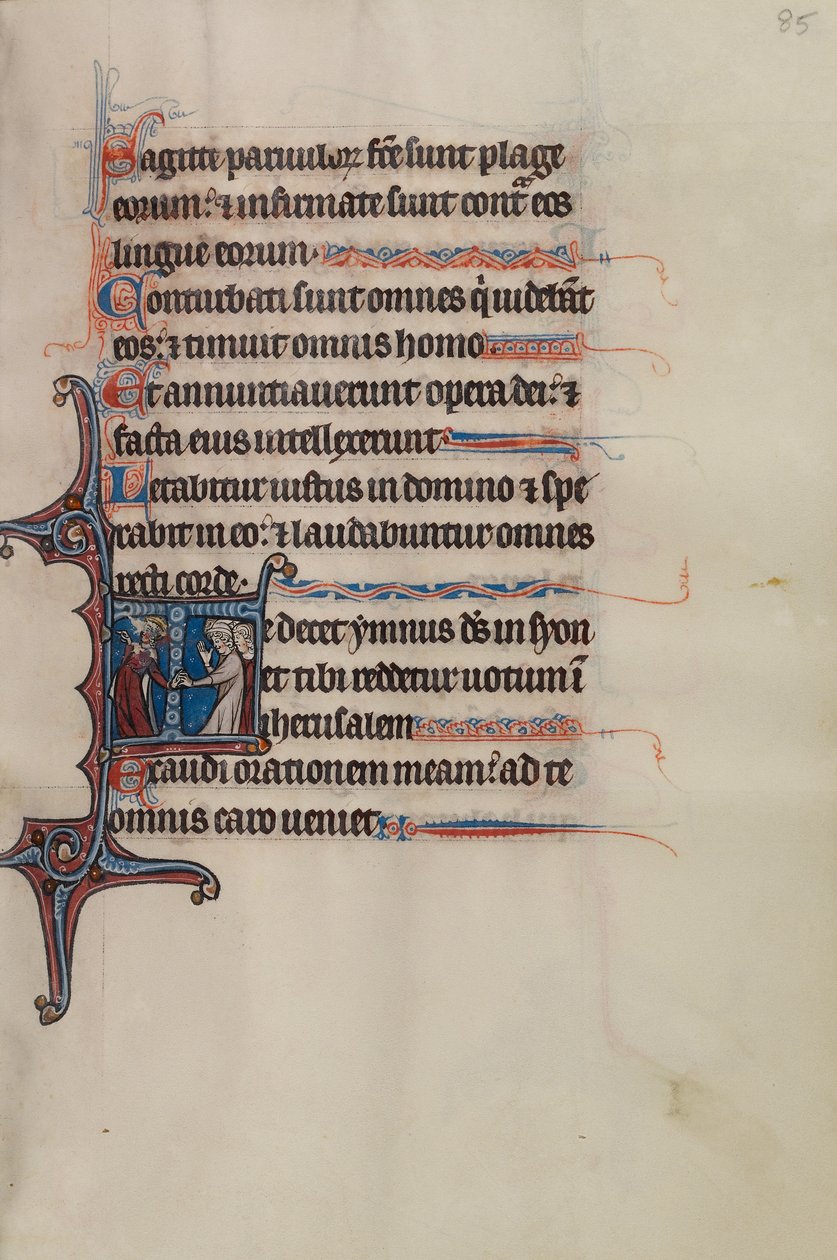 85
Sagitte paruulorꝝ fc̄e sunt plage
eorum: ⁊ infirmate sunt contᷓ eos
lingue eorum.
Conturbati sunt omnes qͥ uidebāt
eos: ⁊ timuit omnis homo.
Et annuntiauerunt opera dei: ⁊
facta eius intellexerunt
Letabitur iustus in domino ⁊ spe
rabit in eo: ⁊ laudabuntur omnes
recti corde.
Te decet ẏmnus ds̄ in syon
et tibi reddetur uotum ī
iherusalem
Exaudi orationem meam: ad te
omnis caro ueniet